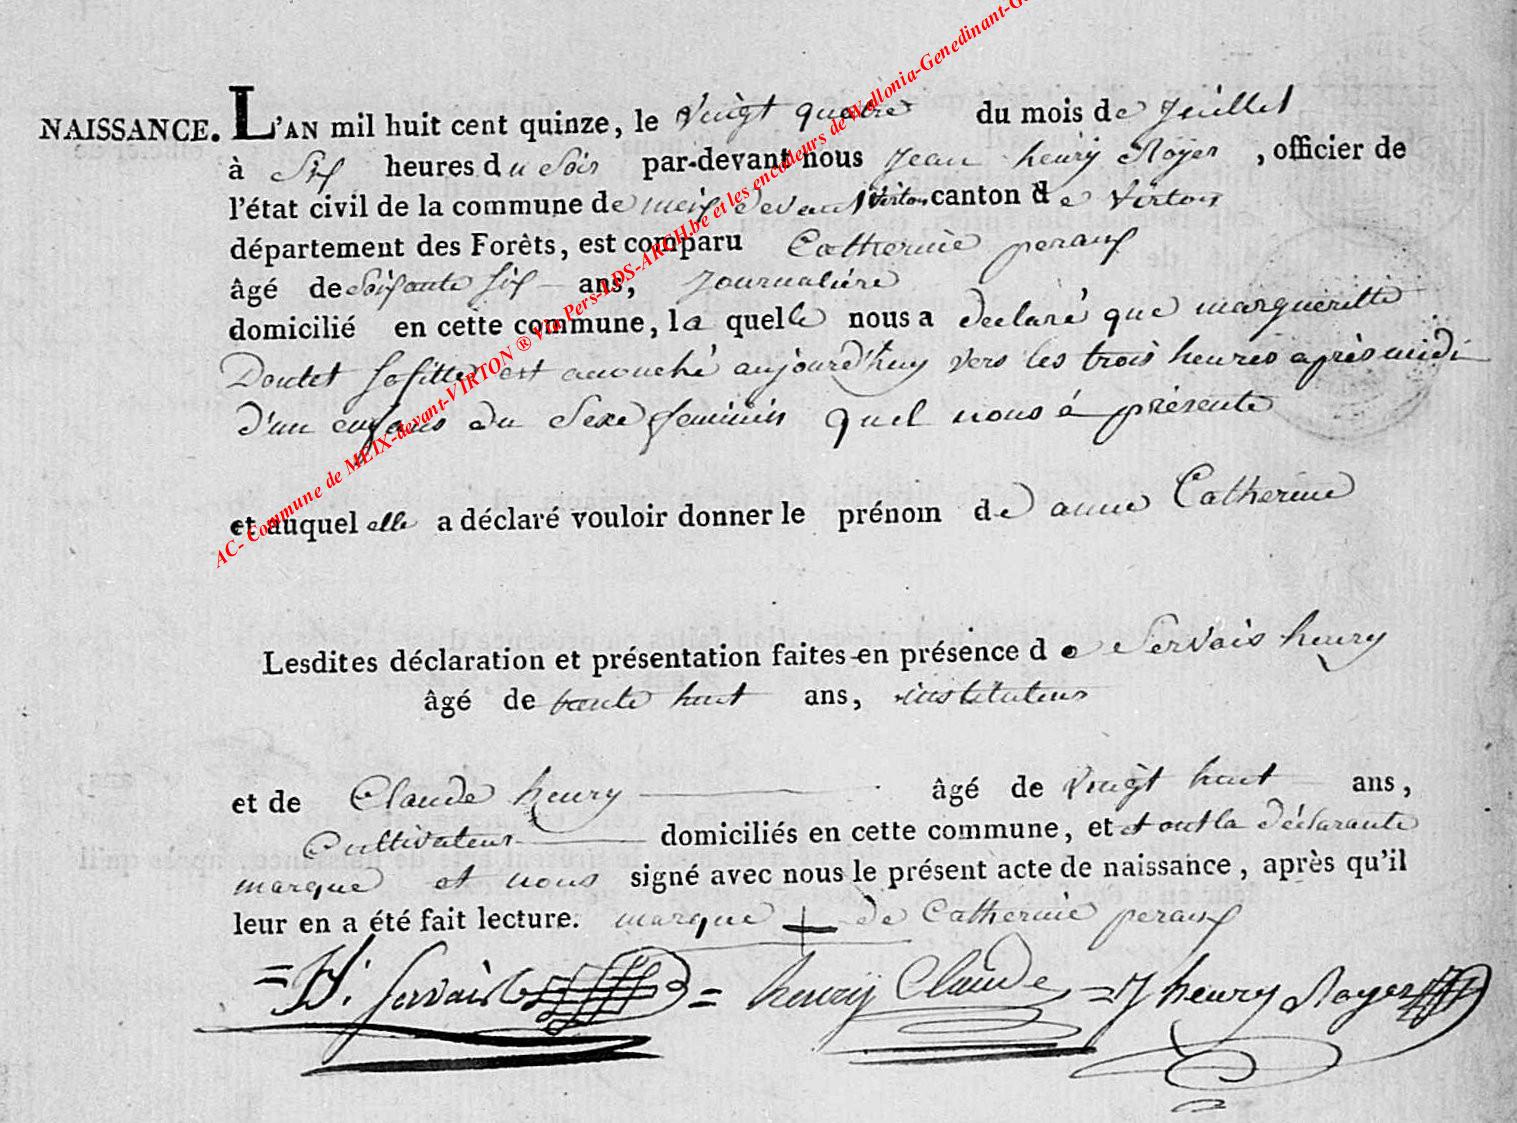 NAISSANCE. L'AN mil huit cent quinze, le Vingt quatre du mois de Juillet
à Six heures du Soir par-devant nous Jean henry Royer, officier de
l'état civil de la commune de meix devant Virton canton de Virton
département des Forêts, est comparu Catherinie peraux
âgé de Soixante Six ans, Journaliére
domicilié en cette commune, la quelle nous a declaré que margueritte
Doutet Sa fille est accouché aujourd'huy vers les trois heures après midi
d'un enfans du Sexe feminin quel nous á présente
et auquel elle a déclaré vouloir donner le prénom de anne Catherine
Lesdites déclaration et présentation faites en présence de Servais henry
âgé de trente huit ans, instituteur
et de Claude henry âgé de Vingt huit ans,
Cultivateur domiciliés en cette commune, et et ont la déclarante
marqué et nous signé avec nous le présent acte de naissance, après qu'il
leur en a été fait lecture. marque + de Catherinie peraux
= H. Servais = henrÿ Claude = J henry Royer
AC- Commune de MEIX-devant-VIRTON ® Via Pers-LDS-ARCH.be et les encodeurs de Wallonia-Genedinant-G